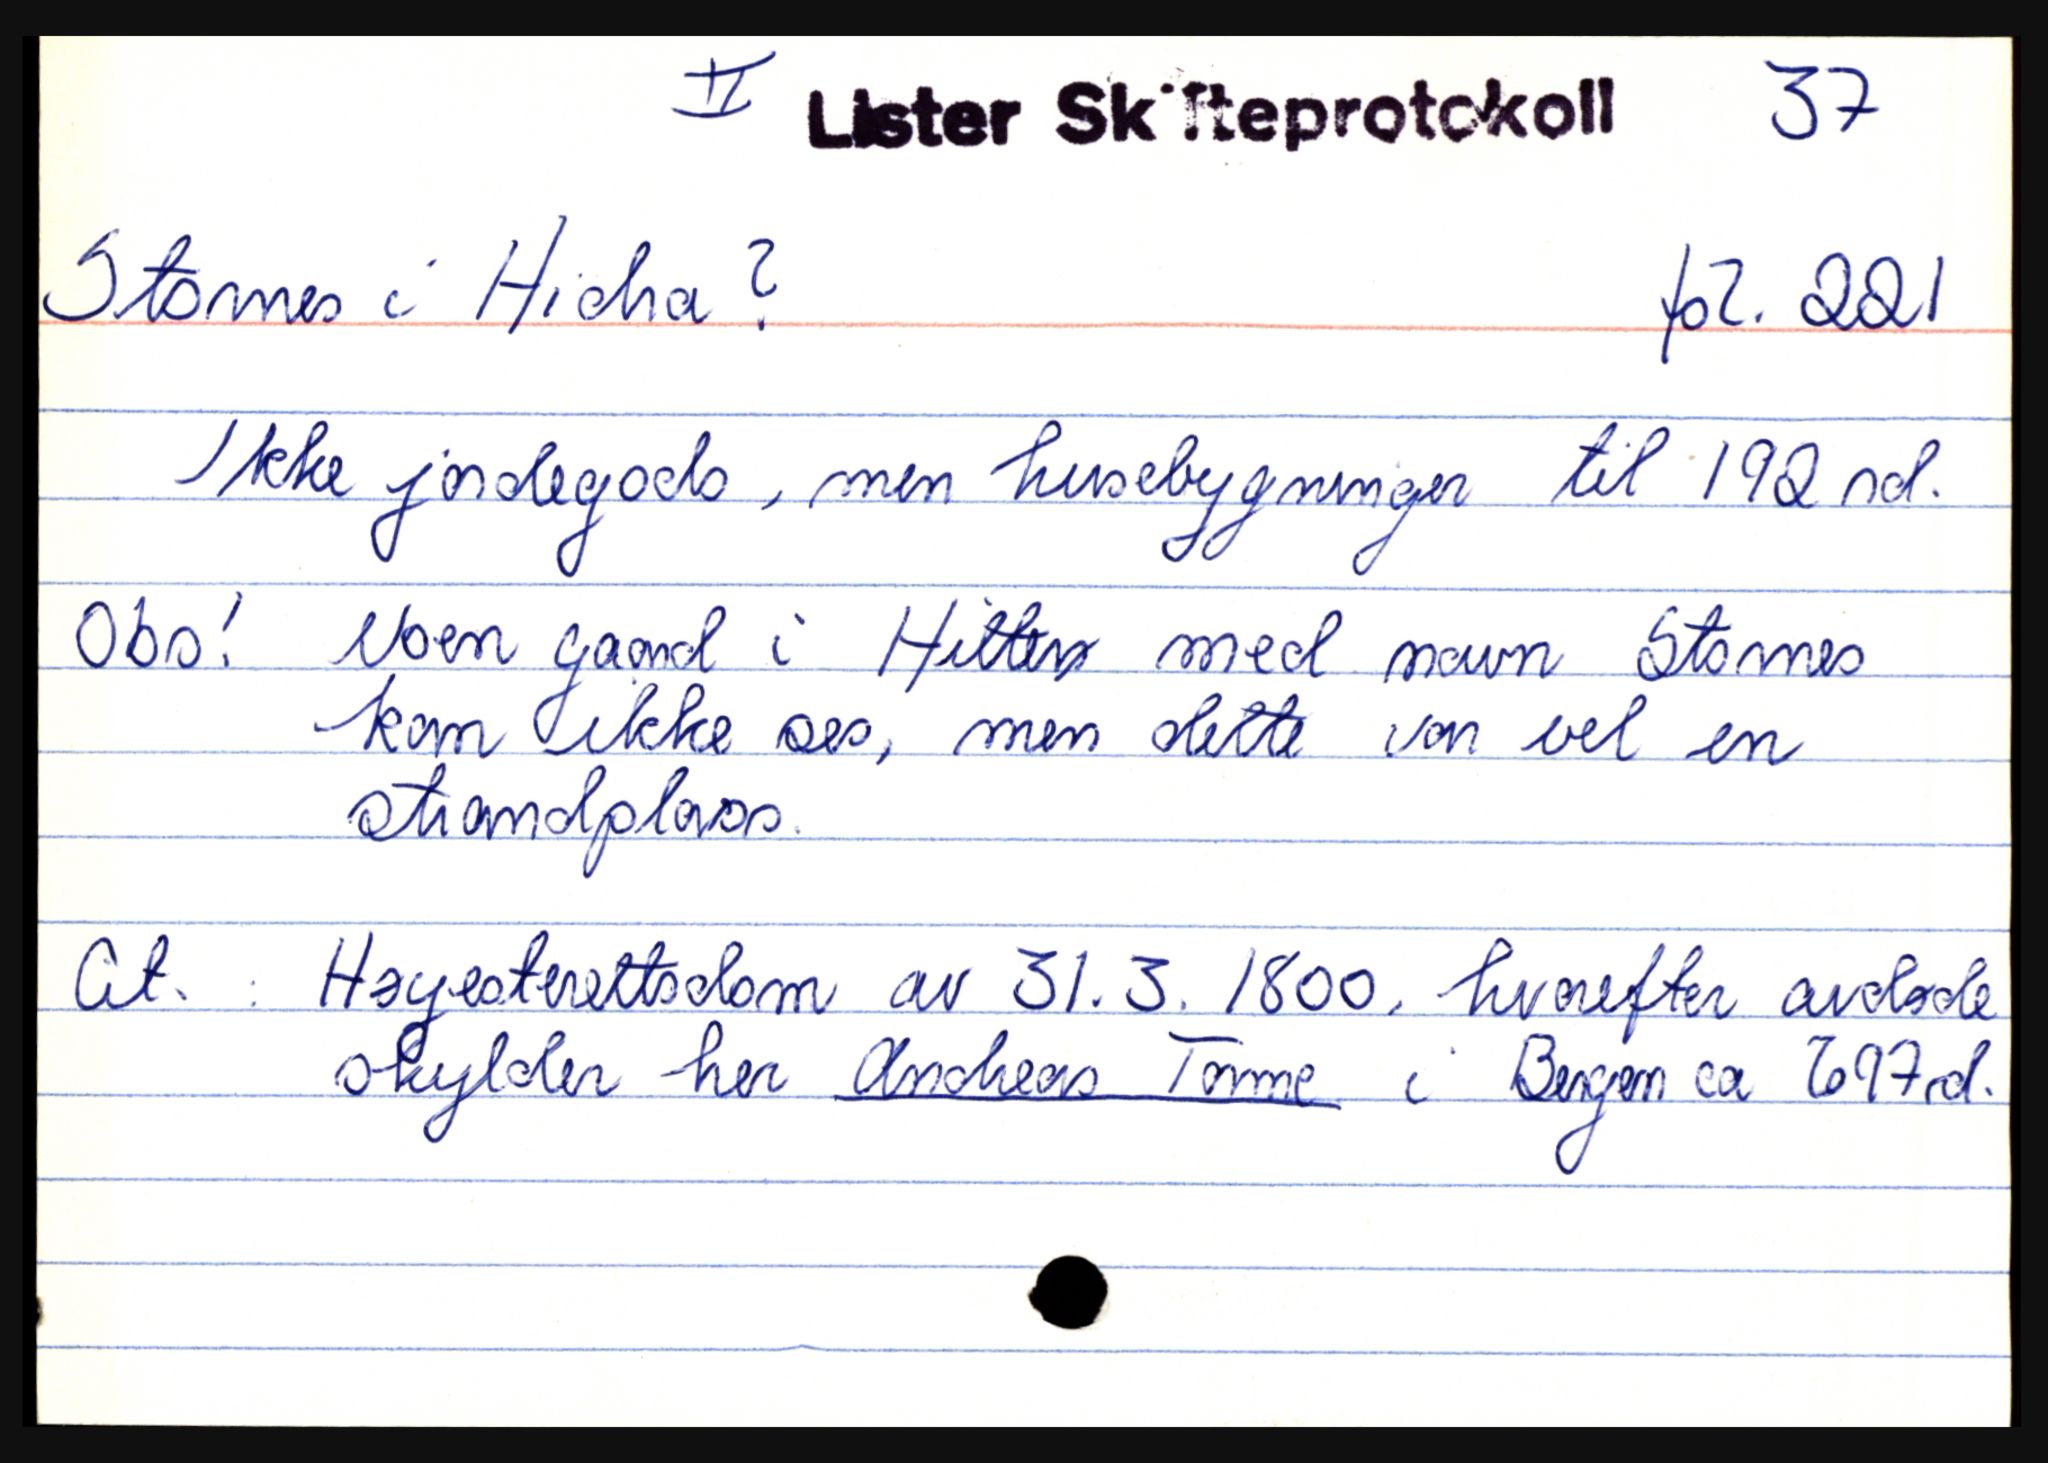 II Lister Skifteprotokoll 37
Stornes i Hidra? fol. 221
Ikke jordegods, men husebygninger til 192 rd.
Obs! Noen gaard i Hitterø med navn Stornes
kan ikke ses, men dette var vel en
strandplass.
Cit. : Høyesterettsdom av 31.3.1800, hvorefter avdøde
skylder her Andreas Tonne i Bergen ca 697 rd.